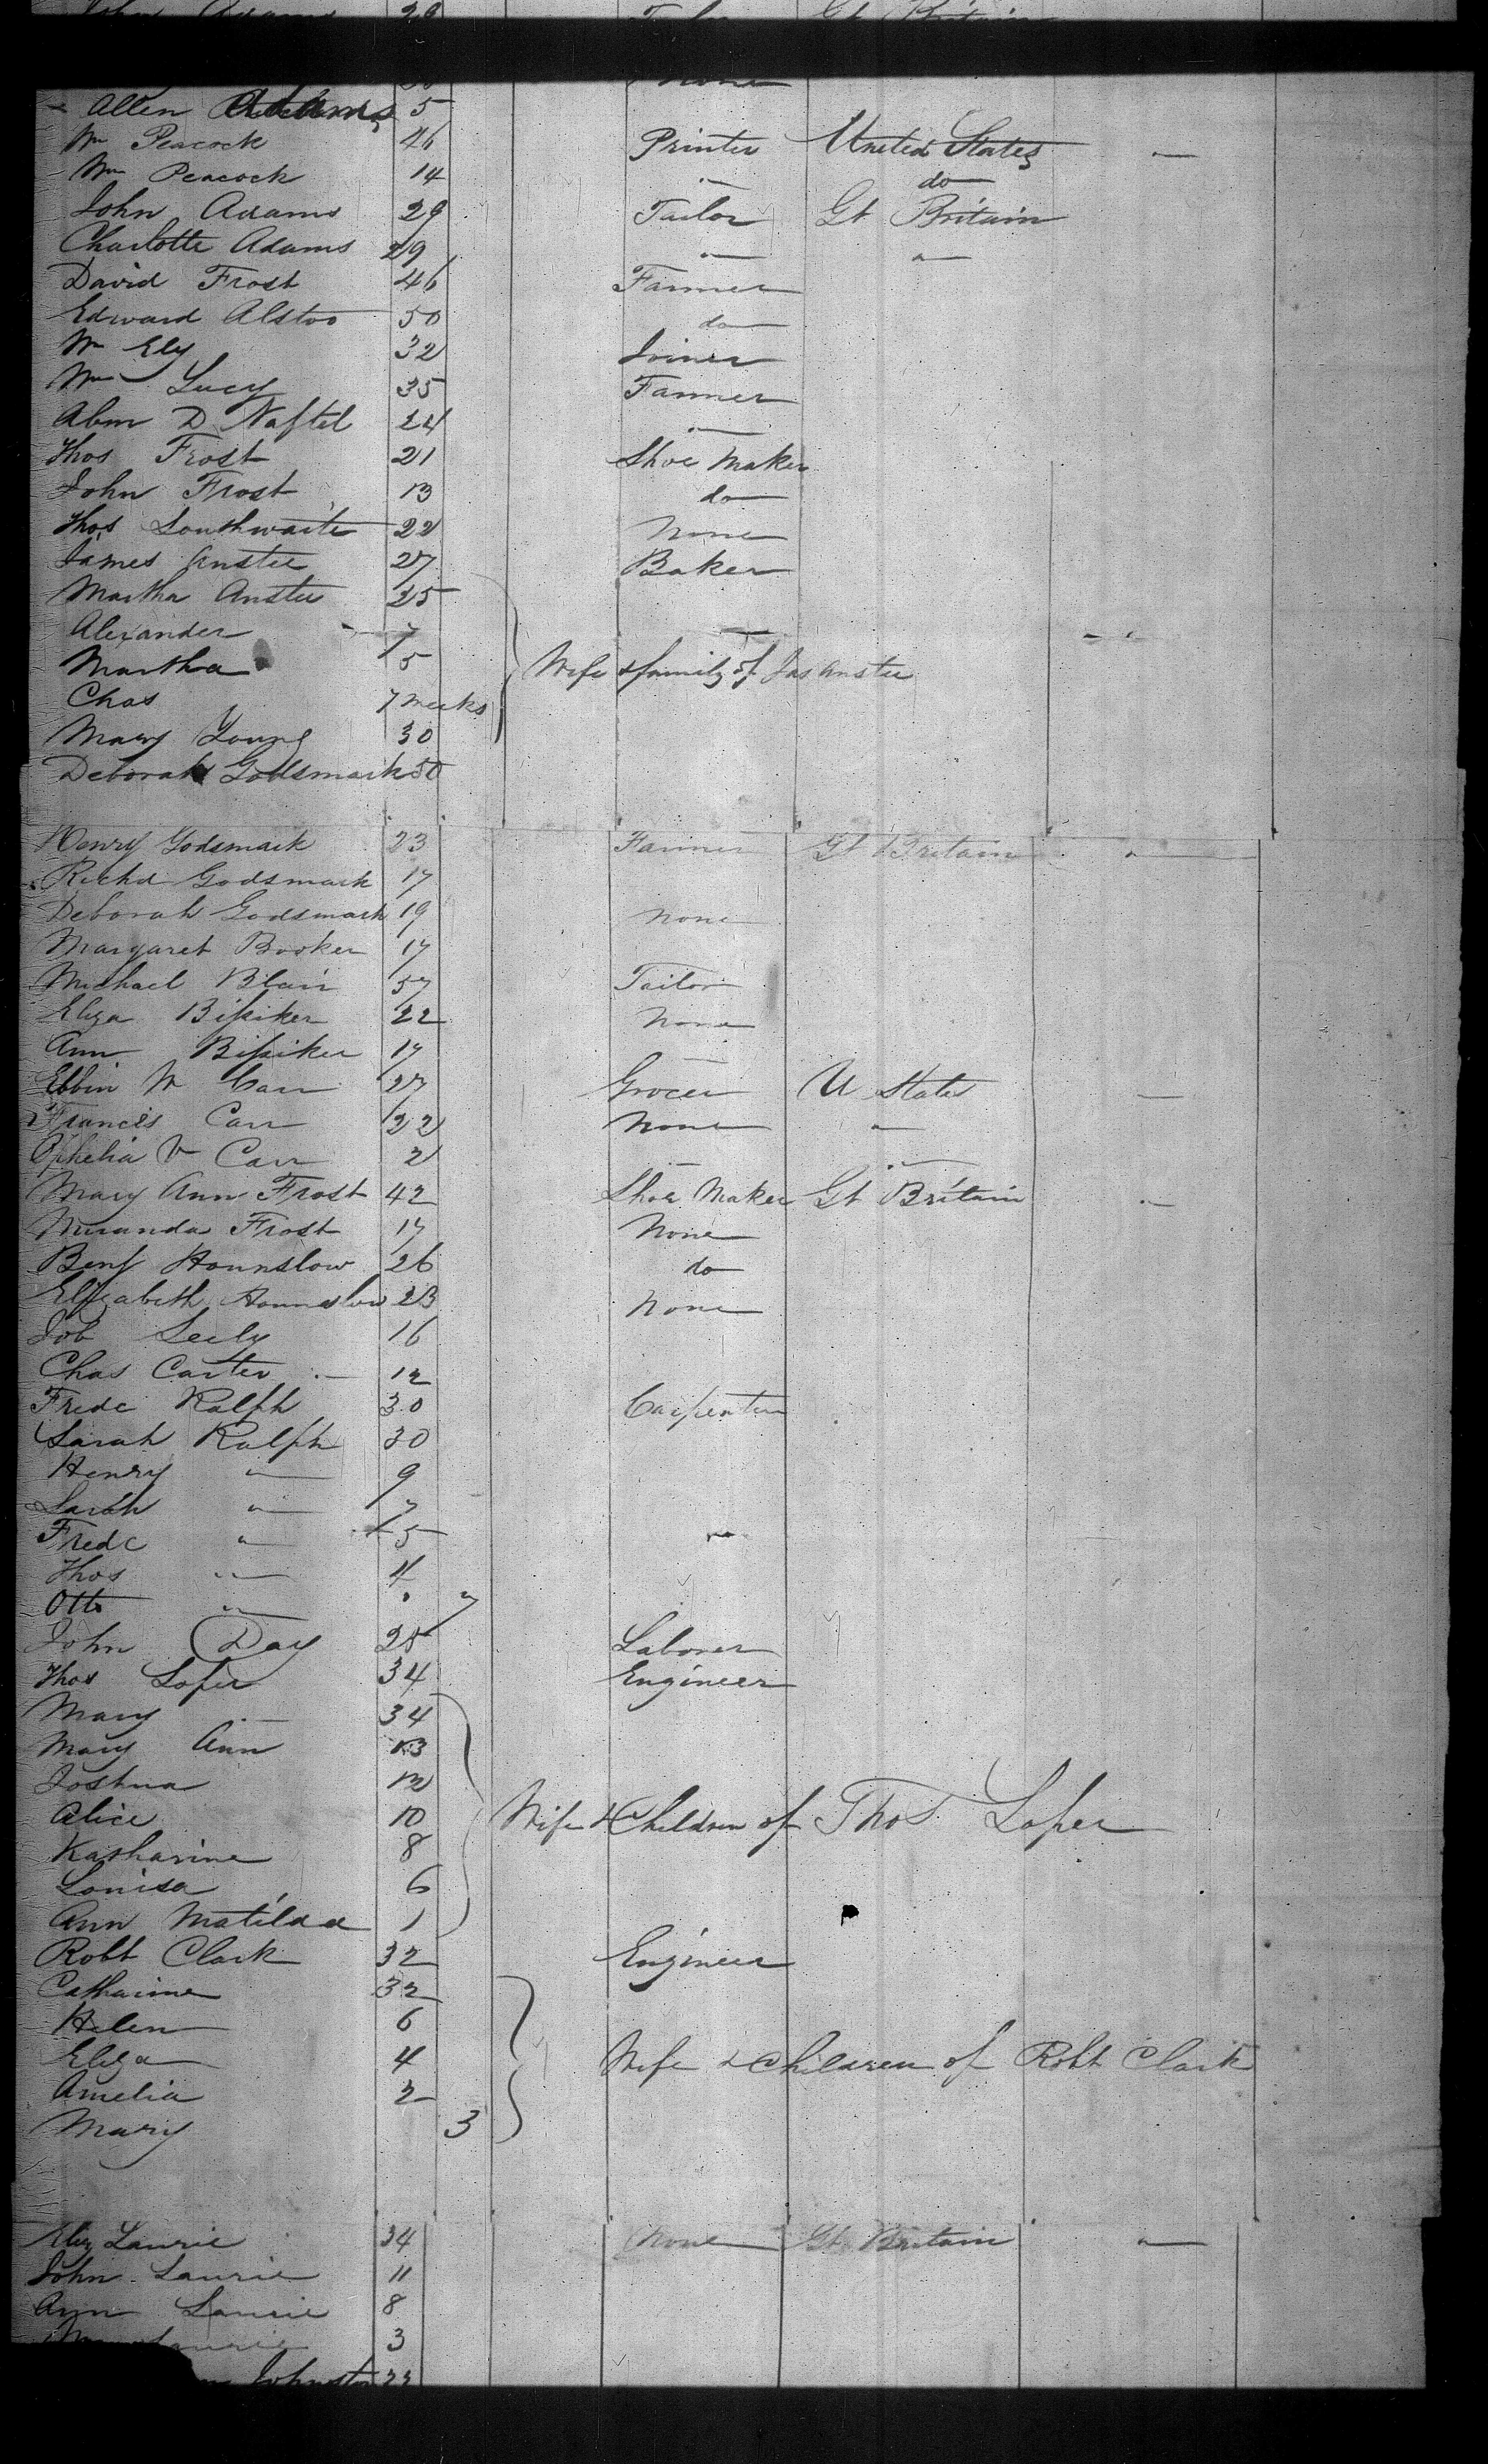 John Adams 29 Tailor Gt Britain
None
Allen Adams 5
Wm Peacock 46 Printer United States —
Wm Peacock 14 — do
John Adams 29 Tailor Gt Britain
Charlotte Adams 29 — "
David Frost 46 Farmer
Edward Alstoo 50 do
Wm Ely 32 Joiner
Wm Lucy 35 Farmer
Abm D Naftel 24 —
Thos Frost 21 Shoe Maker
John Frost 13 do
Thos Southwaite 22 None
James Anstee 27 Baker
Martha Anstee 25
Alexander 7 —
Martha 5 Wife & family of Jas Anstee
Chas 7 weeks
Mary Young 30
Deborah Godsmark 50
Henry Godsmark 23 Farmer Gt Britain —
Richd Godsmark 17
Deborah Godsmark 19 None
Margaret Booker 17
Michael Blair 57 Tailor
Eliza Bifsiker 22 None
Ann Bifsiker 17 —
Ebbin W Carr 27 Grocer U States —
Francis Carr 22 None "
Ophelia V Carr 2 — "
Mary Ann Frost 42 Shoe Maker Gt Britain —
Miranda Frost 17 None
Benj Hounslow 26 do
Elizabeth Hounslow 23 None
Job Seely 16
Chas Carter 12
Fredc Ralph 30 Carpenter
Sarah Ralph 30
Henry " 9
Sarah " 7
Fredc " 5 "
Thos " 4
Otto " 7
John Day 25 Laborer
Thos Loper 34 Engineer
Mary — 34
Mary Ann 13
Joshua 12
Alice 10 Wife & Children of Thos Loper
Katharine 8
Louisa 6
Ann Matilda 1
Robt Clark 32 Engineer
Catharine 32
Helen 6
Eliza 4 Wife & Children of Robt Clark
Amelia 2
Mary 3
Eliz Laurie 34 None Gt Britain —
John Laurie 11
Ann Laurie 8
Laurie 3
Johnston 22